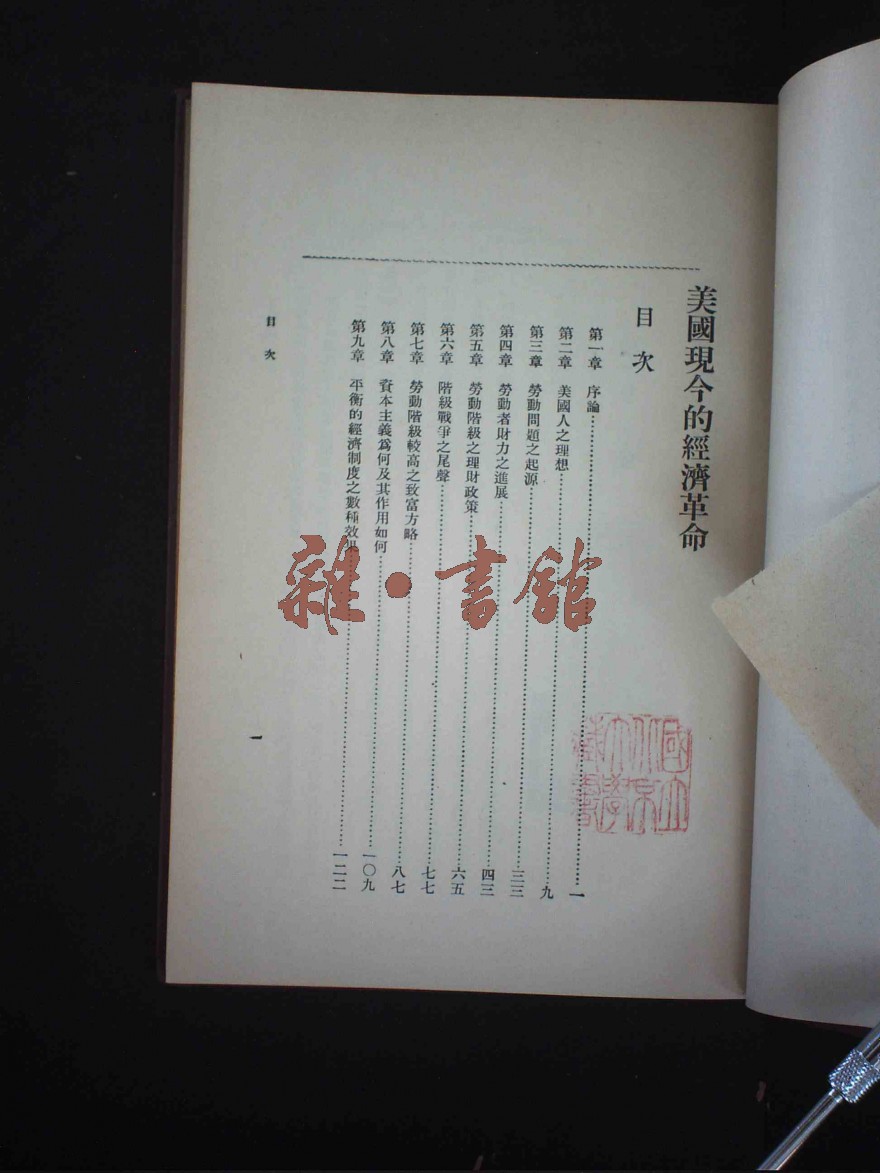 美國現今的經濟革命
目次
第一章 序論……一
第二章 美國人之理想……九
第三章 勞動問題之起源……三三
第四章 勞動者財力之進展……四三
第五章 勞動階級之理財政策……六五
第六章 階級戰爭之尾聲……七七
第七章 勞動階級較高之致富方略……八七
第八章 資本主義爲何及其作用如何……一〇九
第九章 平衡的經濟制度之數種效果……一二二
目次
一
雜·書館